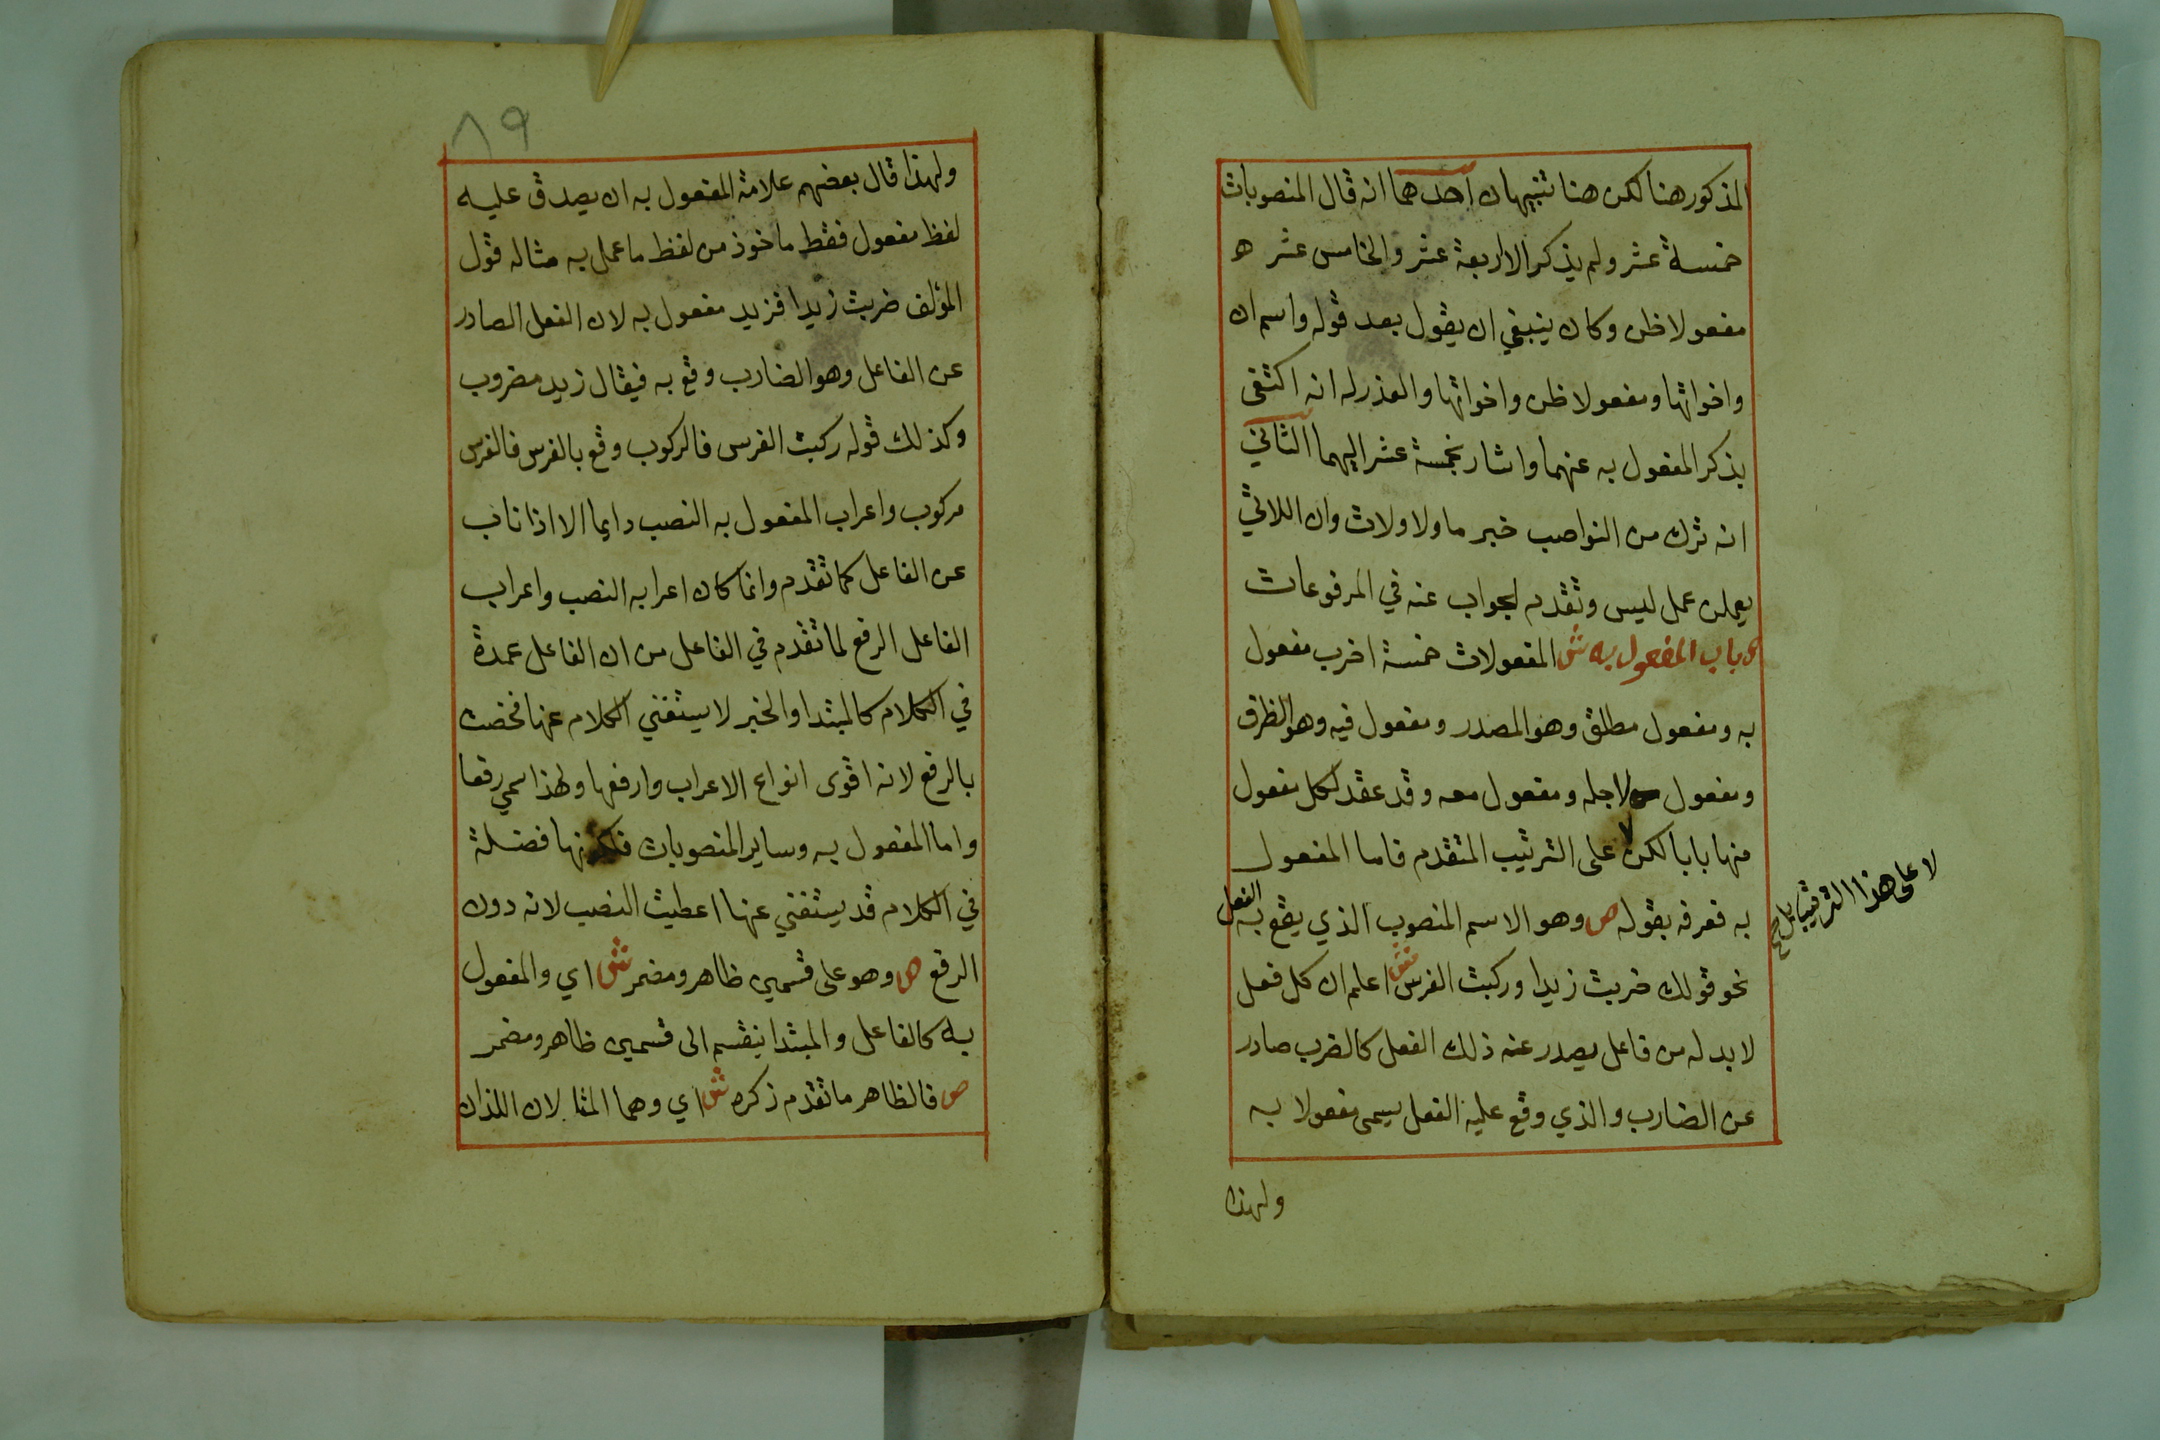 المذكور هنا لكن هنا تنبيهان احدهما انه قال المنصوبات
خمسة عشر ولم يذكر الا اربعة عشر والخامس عشر ه
مفعولا ظن وكان ينبغي ان يقول بعد قوله واسم ان
واخواتها ومفعولا ظن واخواتها والعذر له انه اكتفى
بذكر المفعول به عنهما واشار بخمسة عشر اليهما الثاني
انه ترك من النواصب خبر ما ولا ولات وان اللاتي
يعملن عمل ليس وتقدم الجواب عنه في المرفوعات
ص باب المفعول به ش المفعولات خمسة اضرب مفعول
به ومفعول مطلق وهو المصدر ومفعول فيه وهو الظرف
ومفعول لاجله ومفعول معه وقد عقد لكل مفعول
منها بابا لكن لا على الترتيب المتقدم فاما المفعول
لا على هذا الترتيب بل صح
به فعرفه بقوله ص وهو الاسم المنصوب الذي يقع به الفعل
نحو قولك ضربت زيدا وركبت الفرس ش اعلم ان كل فعل
لا بد له من فاعل يصدر عنه ذلك الفعل كالضرب صادر
عن الضارب والذي وقع عليه الفعل يسمى مفعولا به
ولهذا
٨٩
ولهذا قال بعضهم علامة المفعول به ان يصدق عليه
لفظ مفعول فقط ماخوذ من لفظ ما عمل به مثاله قول
المؤلف ضربت زيدا فزيد مفعول به لان الفعل الصادر
عن الفاعل وهو الضارب وقع به فيقال زيد مضروب
وكذلك قوله ركبت الفرس فالركوب وقع بالفرس فالفرس
مركوب واعراب المفعول به النصب دايما الا اذا ناب
عن الفاعل كما تقدم وانما كان اعرابه النصب واعراب
الفاعل الرفع لما تقدم في الفاعل من ان الفاعل عمدة
في الكلام كالمبتدا والخبر لا يستغني الكلام عنها فخصت
بالرفع لانه اقوى انواع الاعراب وارفعها ولهذا سمي رفعا
واما المفعول به وساير المنصوبات فلكونها فضلة
في الكلام قد يستغني عنها اعطيت النصب لانه دون
الرفع ص وهو على قسمين ظاهر ومضمر ش اي والمفعول
به كالفاعل والمبتدا ينقسم الى قسمين ظاهر ومضمر
ص فالظاهر ما تقدم ذكره ش اي وهما المثالان اللذان